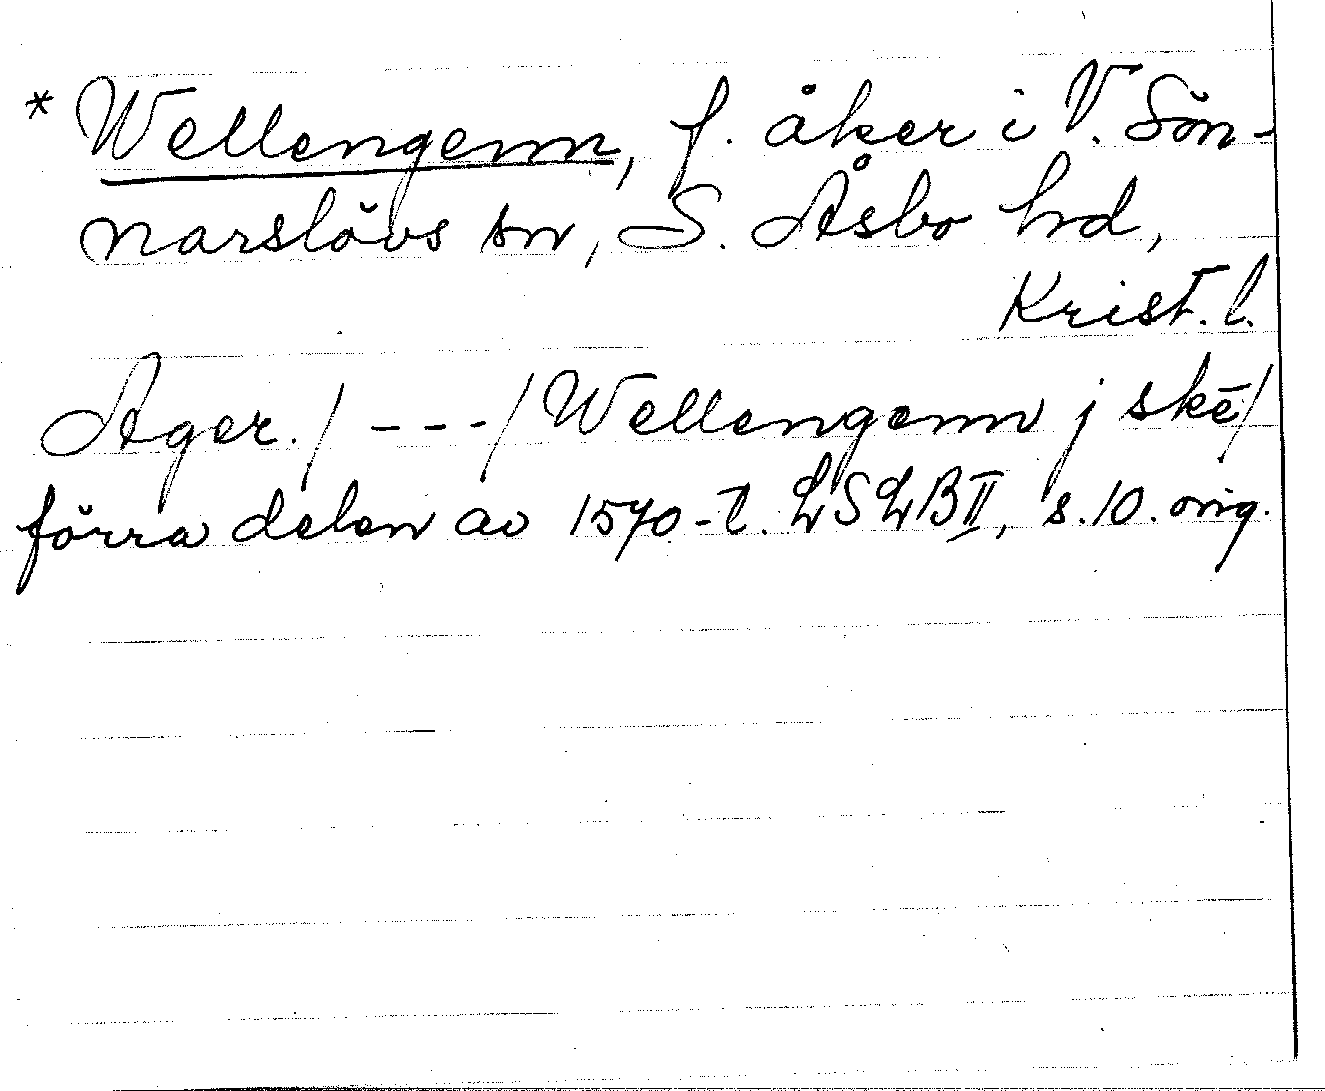 * Wellengenn, f. åker i V. Sön-
narslövs sn, S. Åsbo hd,
Krist. l.
Ager. / --- / Wellengenn j skē /
förra delen av 1570-t. LSLB II, s. 10. orig.